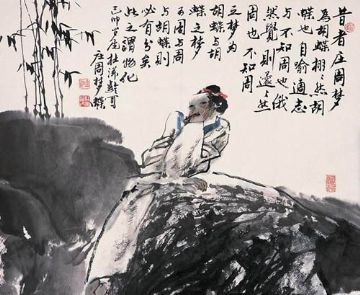 昔者庄周梦
为胡蝶栩々然胡
蝶也自喻适志
与不知周也俄
然觉则蘧々然
周也不知周
之梦为
胡蝶与胡
蝶之梦
为周与周
与胡蝶则
必有分矣
此之谓物化
己卯杜滋龄写
庄周梦蝶